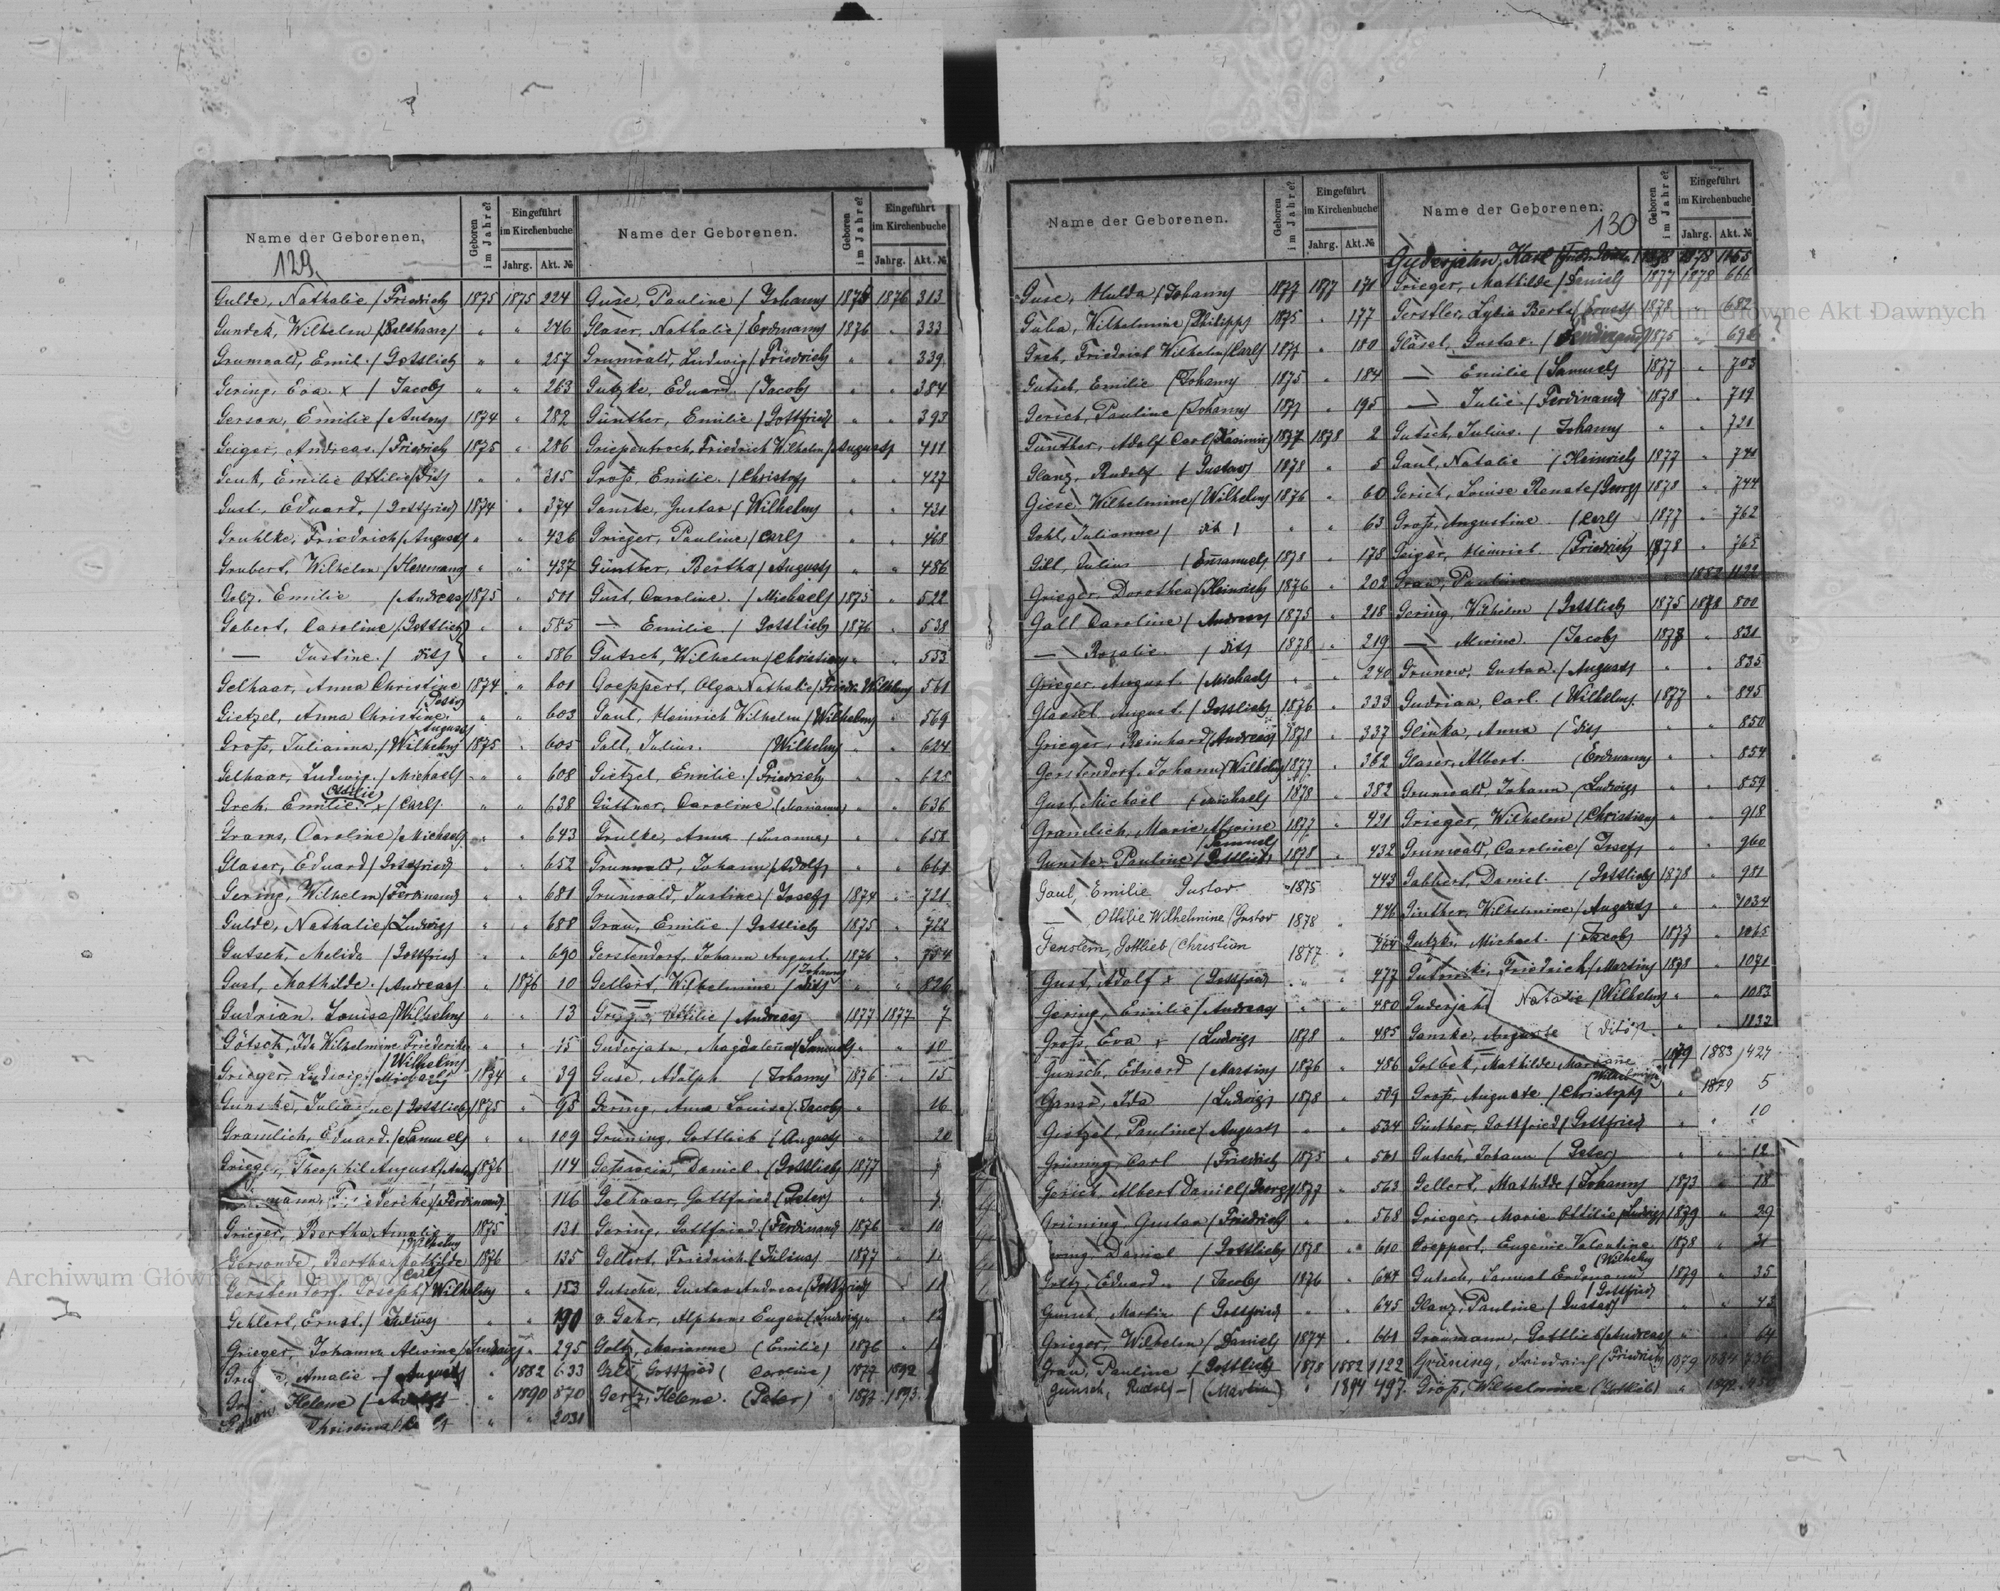 Name der Geborenen.
Geboren im Jahre
Eingeführt im Kirchenbuche
Jahrg. Akt. №
129.
Gulde, Nathalie / Friedrich 1875 1875 224
Gundek, Wilhelm / Balthasar " " 246
Grunwald, Emil / Gottlieb " " 257
Gering, Eva x / Jacob " " 263
Gerson, Emilie / Anton 1874 " 282
Geiger, Andreas / Friedrich 1875 " 286
Genk, Emilie Ottilie / dito " " 315
Gust, Eduard / Gottfried 1874 " 374
Gruhlke, Friedrich / August " " 436
Grubert, Wilhelm / Herrmann " " 437
Golz, Emilie / Andreas 1875 " 501
Gabert, Caroline / Gottlieb " " 585
— Justine / dito " " 586
Gelhaar, Anna Christine 1874 " 601
Gietzel, Anna Christine " " 603
/ August
Groß, Julianna / Wilhelm 1875 " 605
Gelhaar, Ludwig / Michael " " 608
Ottilie
Grch, Emilie x / Carl " " 638
Grams, Caroline / Michael " " 643
Glaser, Eduard / Gottfried " " 652
Gering, Wilhelm / Ferdinand " " 681
Gulde, Nathalie / Ludwig " " 688
Gutsch, Melida / Gottfried " " 690
Gust, Mathilde / Andreas " 1876 10
Gudrian, Louise / Wilhelm " " 13
Götsch, Ida Wilhelmine Friederike " " 15
/ Wilhelm
Grieger, Ludwig / Michael 1874 " 39
Gunske, Julianne / Gottlieb 1875 " 95
Gramlich, Eduard / Samuel " " 109
Grieger, Theophil August 1876 114
/ Ferdinand 116
Grieger, Bertha Amalie 1875 131
/ Wilhelm
Gersonde, Bertha Mathilde 1876 135
/ Carl
Gerstendorf, Joseph / Wilhelm " " 153
Gehlert, Ernst / Julius " " 190
Grieger, Johanna Alwine / Ludwig " " 295
Amalie / August " 1882 633
Helene / " 1890 870
" " 2031
Name der Geborenen.
Geboren im Jahre
Eingeführt im Kirchenbuche
Jahrg. Akt. №
Guse, Pauline / Johann 1875 1876 313
Glaser, Nathalie / Erdmann 1876 " 333
Grunwald, Ludwig / Friedrich " " 339
Gutzke, Eduard / Jacob " " 384
Günther, Emilie / Gottfried " " 393
Griepentroch, Friedrich Wilhelm / August " 411
Groß, Emilie / Christof " " 427
Ganske, Gustav / Wilhelm " " 431
Grieger, Pauline / Carl " " 468
Günther, Bertha / August " " 486
Gust, Caroline / Michael 1875 " 522
— Emilie / Gottlieb 1876 " 538
Gutsch, Wilhelm / Christian " " 553
Goeppert, Olga Nathalie / Friedr. Wilhelm 561
Gaul, Heinrich Wilhelm / Wilhelm " 569
Golt, Julius / Wilhelm " " 624
Gietzel, Emilie / Friedrich " " 625
Güttner, Caroline (Marianne) " " 636
Grulke, Anna (Susanna) " " 658
Grunwald, Johann / Adolf " " 661
Grunwald, Justine / Josef 1874 " 721
Grau, Emilie / Gottlieb 1875 " 722
Gerstendorf, Johann August 1876 " 754
/ Johann
Gellert, Wilhelmine / dito " " 826
Ottilie / Andreas 1877 1877 7
Guderjahn, Magdalena / Samuel " " 10
Guse, Adolph / Johann 1876 " 15
Gering, Anna Louise / Jacob " 16
Grüning, Gottlieb / August " 20
Daniel / Gottlieb 1877
Gelhaar, Gottfried / Peter "
Gering, Gottfried / Ferdinand 1876
Gellert, Friedrich / Julius 1877
Gutsche, Gustav Andreas / Gottfried
v. Gahr, Alphons Eugen / Ludwig "
Goltz, Marianne (Emilie) 1876
Gottfried (Caroline) 1877 1892
Gertz, Helene (Peter) 1877 1893
Name der Geborenen.
Geboren im Jahre
Eingeführt im Kirchenbuche
Jahrg. Akt. №
Guse, Hulda / Johann 1877 1877 171
Guba, Wilhelmine / Philipp 1875 " 177
Grch, Friedrich Wilhelm / Carl 1877 " 180
Gutsch, Emilie / Johann 1875 " 184
Gerich, Pauline / Johann 1877 " 195
Günther, Adolf Carl / Kasimir 1877 1878 2
Glanz, Rudolf / Gustav 1878 " 5
Giese, Wilhelmine / Wilhelm 1876 " 60
Gohl, Julianne / dito " " 63
Gill, Julius / Emanuel 1878 " 178
Grieger, Dorothea / Heinrich 1876 " 202
Gall, Caroline / Andreas 1875 " 218
— Rosalie / dito 1878 " 219
Grieger, August / Michael " " 240
Glaesel, August / Gottlieb 1876 " 333
Grieger, Reinhard / Andreas 1878 " 337
Gerstendorf, Johann / Wilhelm 1877 " 362
Gust, Michael / Michael 1878 " 382
Gramlich, Marie Alwine 1877 " 421
/ Samuel
Gunske, Pauline / Gottlieb 1878 " 432
Gaul, Emilie Gustav 1875 443
— Ottilie Wilhelmine / Gustav 1878 446
Genstein, Gottlieb / Christian 1877 " 464
Gust, Adolf x / Gottfried " " 477
Gering, Emilie / Andreas " " 480
Groß, Eva x / Ludwig 1878 " 485
Günsch, Eduard / Martin 1876 " 486
Ida / Ludwig 1878 " 509
Gietzel, Pauline / August " " 534
Grüning, Carl / Friedrich 1875 " 561
Gerich, Albert Daniel / Georg 1877 " 563
Grüning, Gustav / Friedrich " " 568
Gering, Daniel / Gottlieb 1878 " 610
Eduard / Jacob 1876 "
Martin / Gottfried " " 645
Grieger, Wilhelm / Daniel 1874 " 661
Grau, Pauline / Gottlieb 1878 1882 1122
Günsch, Rudolf — (Martin) " 1894 497
Name der Geborenen.
130
Geboren im Jahre
Eingeführt im Kirchenbuche
Jahrg. Akt. №
Guderjahn, Karl 1878 1878
Grieger, Mathilde / Daniel 1877 1878 666
Gerstler, Lydia Berta / Ernest 1878 " 682
Gläsel, Gustav / Ferdinand 1875 " 696
— Emilie / Samuel 1877 " 703
— Julie / Ferdinand 1878 " 719
Gutsch, Julius / Johann " " 721
Gaul, Natalie / Heinrich 1877 " 741
Gerich, Louise Renate / Georg 1878 " 744
Groß, Augustine / Carl 1877 " 762
Geiger, Heinrich / Friedrich 1878 " 765
Grau, Pauline 1882 1122
Gering, Wilhelm / Gottlieb 1875 1878 800
— Alwine / Jacob 1878 " 831
Grunow, Gustav / August " " 835
Gudrian, Carl / Wilhelm 1877 " 845
Glinka, Anna / dito " " 850
Glaser, Albert / Erdmann " " 854
Grunwald, Johann / Ludwig " " 859
Grieger, Wilhelm / Christian " " 918
Grunwald, Caroline / Josef " " 960
Gabbert, Daniel / Gottlieb 1878 " 981
Günther, Wilhelmine / August " " 1034
Gutzke, Michael / Jacob 1877 " 1065
Friedrich / Martin 1878 " 1071
Guderjahn Natalie / Wilhelm " " 1083
Ganske, Auguste (dito) " " 1132
Golbek, Mathilde Marianne 1879 1883 1427
/ Wilhelmine
Groß, Auguste / Christoph " 1879 5
Günther, Gottfried / Gottfried " " 10
Gutsch, Johann / Peter " " 12
Gellert, Mathilde / Johann 1873 " 18
Grieger, Marie Ottilie / Ludwig 1879 " 29
Goeppert, Eugenie Valentine 1878 " 31
/ Wilhelm
Gutsch, Samuel Erdmann 1879 " 35
/ Gottfried
Glanz, Pauline / Gustav " " 43
Graumann, Gottlieb / Andreas " " 64
Grüning, Friedrich / Friedrich 1879 1884 736
Groß, Wilhelmine (Gottlieb) " 1892
Archiwum Główne Akt Dawnych
Archiwum Główne Akt Dawnych